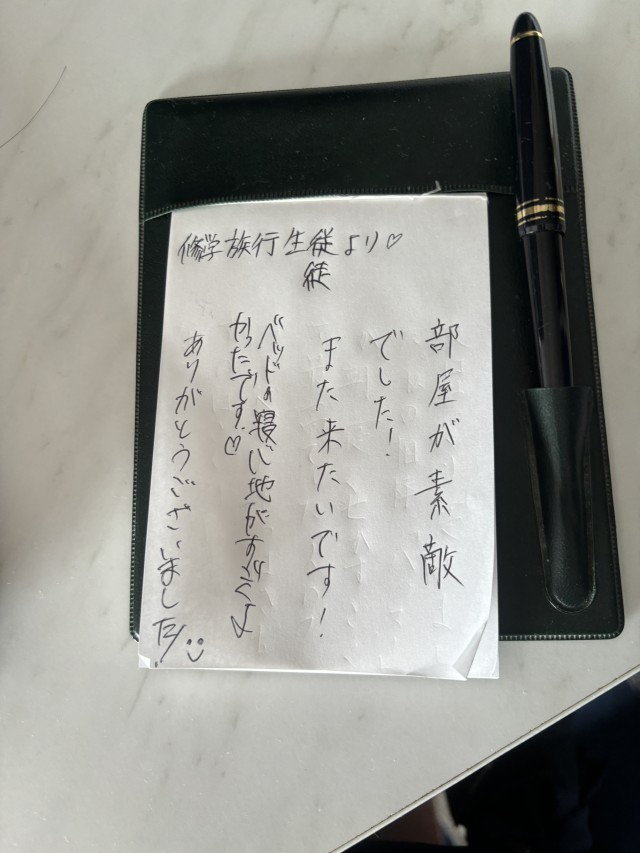 修学族行生徒より♡
徒
部屋が素敵
でした!
また来たいです!
ベッドの寝心地がすごくよ
かったです♡
ありがとうございました!